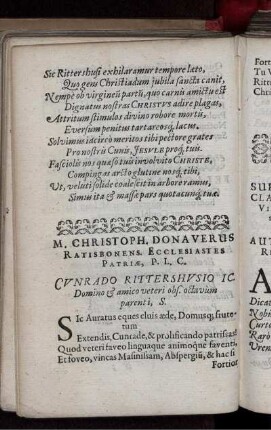 Sic Rittershusi exhilaramur tempore læto,
Quo gens Christiadum jubila sancta canit,
Nempè ob virginei partû, quo carnis amictu est
Dignatus nostras CHRISTVS adire plagas,
Attritum stimulos divino robore mortis,
Eversum penitus tartareosq́; lacus.
Solvimus idcirco meritos tibi pectore grates
Pro nostris Cunis, JESVLE proq́; tuis.
Fasciolis nos quæso tuis involvito CHRISTE,
Compingas arcto glutine nosq́; tibi,
Ut, veluti solide coalescit in arbore ramus,
Simus ita & massæ pars quotacunq́; tuæ.
M. CHRISTOPH. DONAVERUS
RATISBONENS. ECCLESIASTES
PATRIÆ, P. L. C.
CVNRADO RITTERSHVSIO IC.
Domino & amico veteri obs. octavùm
parenti, S.
SIc Auratus eques eluis æde, Domusq́; statu-
tum
Extendis, Cunrade, & prolificando patrissas:
Quod veteri faveo linguaque animoque faventi,
Et foveo, vincas Masinissam, Abspergiũ, & hac si
Fortior